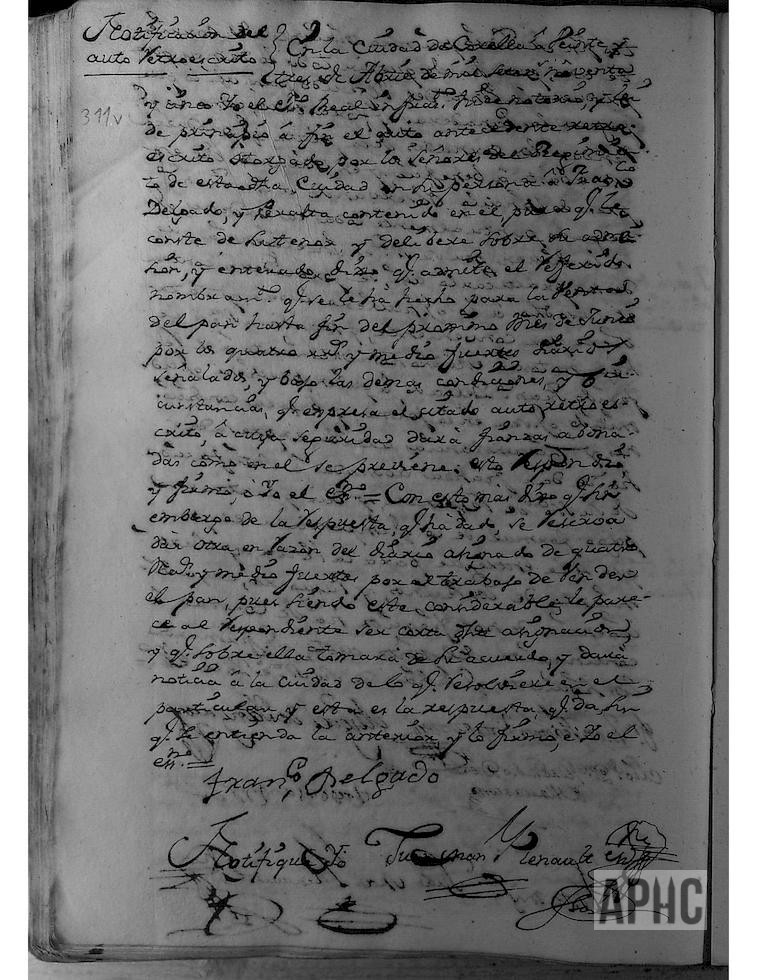 Notificacion del
auto retroescrito
En la Ciudad de Corella a Veinte y
tres de Abril de mil setec.s noventa
311v
y cinco Yo el Ess.no Real infras.to hice notorio, y lei
de principio á fin el auto antecedente retro-
escrito otorgado, por los Señores del Regimien-
to de esta dha Ciudad en su persona a Fran.co
Delgado, y Peralta contenido en el, para q.e le
conste de su tenor, y delibere sobre su admi-
sion, y enterado, dixo q.e admite el Refferido
nombram.to q.e se le ha hecho para la Venta
del pan hasta fin del proximo Mes de Junio
por los quatro rr.s y medio fuertes diarios
señalados, y bajo las demas condiciones, y cir-
cunstancias, q.e expresa el citado auto retroes-
crito, á cuya seguridad dará fianzas abona-
das como en el se previene: esto Respondió
y firmó, é Yo el Ess.no = Con esto mas dixo q.e sin
embargo de la Respuesta q.e ha dado, se reserva
dár otra en razon del diario asignado de quatro
Rea.s y medio fuertes por el trabajo de Vender
el pan, pues siendo este considerable le pare-
ce al Respondiente ser corta dha asignacion,
y q.e sobre ella tomará su acuerdo, y dará
noticia á la Ciudad de lo q.e resolviere en el
particular, y esta es la respuesta, q.e da sin
q.e se entienda la anterior, y lo firmó, é Yo el
ess.no =
Fran.co Delgado
Notifiqué Yo Juachin Renault ess.no
APHC